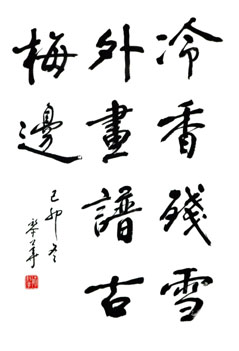 冷香殘雪
外畫譜古
梅邊
己卯冬